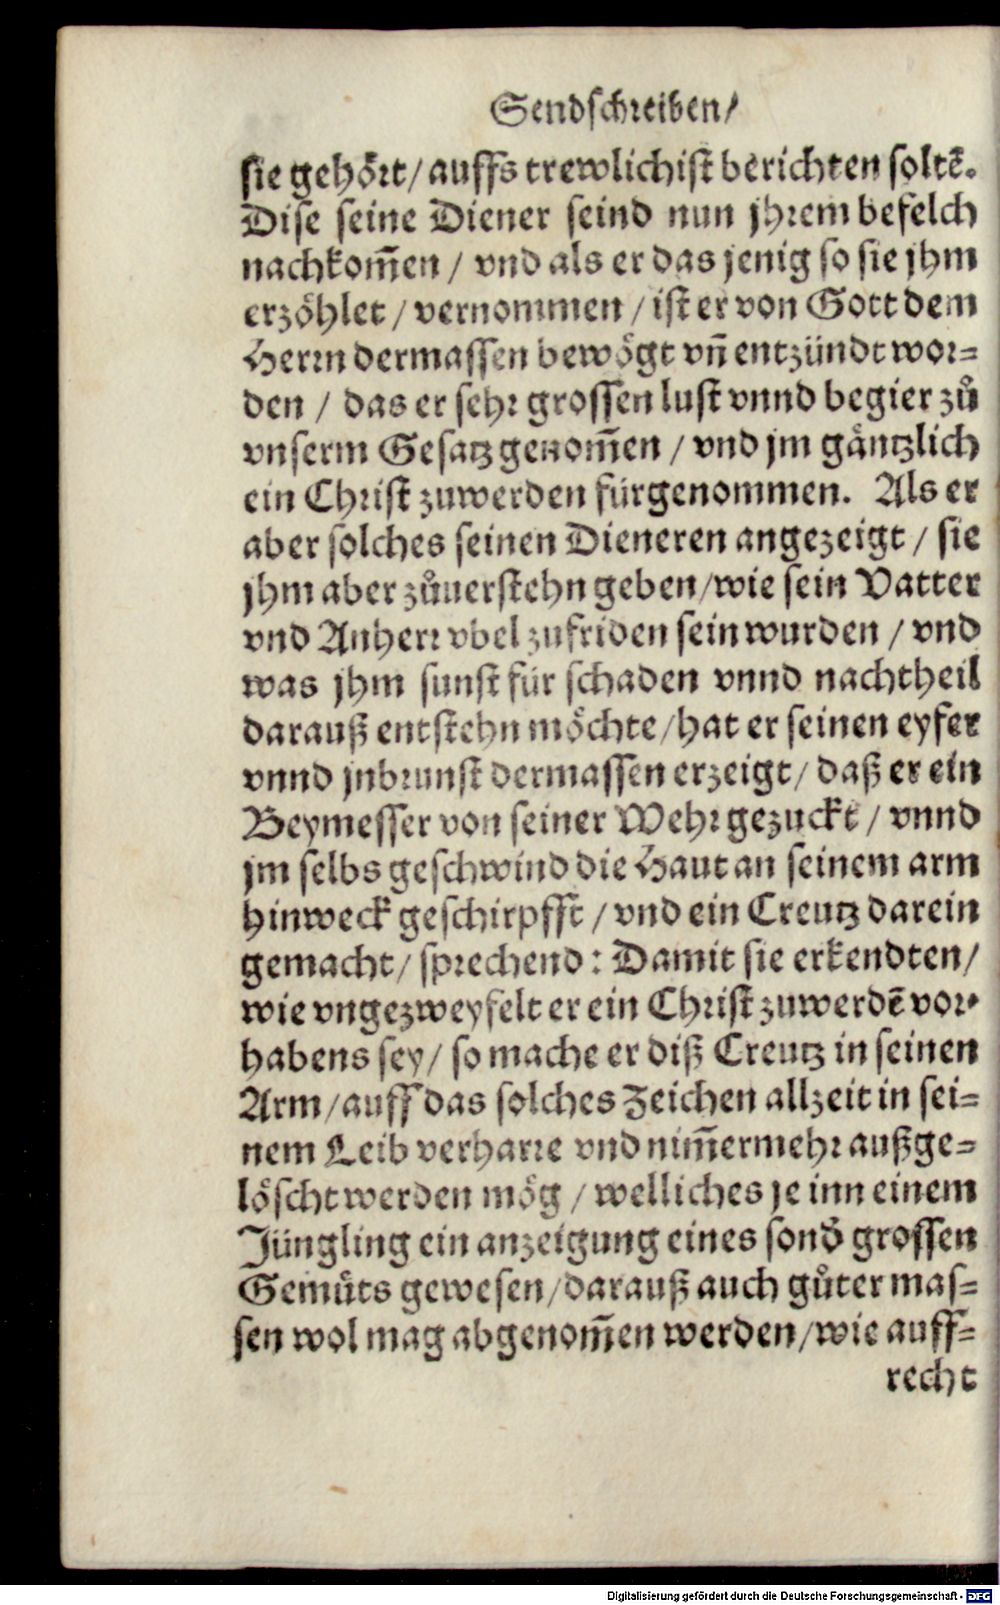 Sendschreiben/
sie gehört/ auffs trewlichist berichten soltē.
Dise seine Diener seind nun jhrem befelch
nachkom̄en / vnd als er das jenig so sie jhm
erzöhlet / vernommen / ist er von Gott dem
Herrn dermassen bewögt vn̄ entzündt wor=
den / das er sehr grossen lust vnnd begier zů
vnserm Gesatz genom̄en / vnd jm gäntzlich
ein Christ zuwerden fürgenommen. Als er
aber solches seinen Dieneren angezeigt / sie
jhm aber zůuerstehn geben/wie sein Vatter
vnd Anherr vbel zufriden sein wurden / vnd
was jhm sunst für schaden vnnd nachtheil
darauß entstehn möchte/hat er seinen eyfer
vnnd jnbrunst dermassen erzeigt/ daß er ein
Beymesser von seiner Wehr gezuckt / vnnd
jm selbs geschwind die Haut an seinem arm
hinweck geschirpfft / vnd ein Creutz darein
gemacht/ sprechend: Damit sie erkendten/
wie vngezweyfelt er ein Christ zuwerdē vor=
habens sey/ so mache er diß Creutz in seinen
Arm/auff das solches Zeichen allzeit in sei=
nem Leib verharre vnd nim̄ermehr außge=
löscht werden mög / welliches je inn einem
Jüngling ein anzeigung eines sond̄ grossen
Gemüts gewesen/darauß auch gůter mas=
sen wol mag abgenom̄en werden/wie auff=
recht
Digitalisierung gefördert durch die Deutsche Forschungsgemeinschaft - DFG